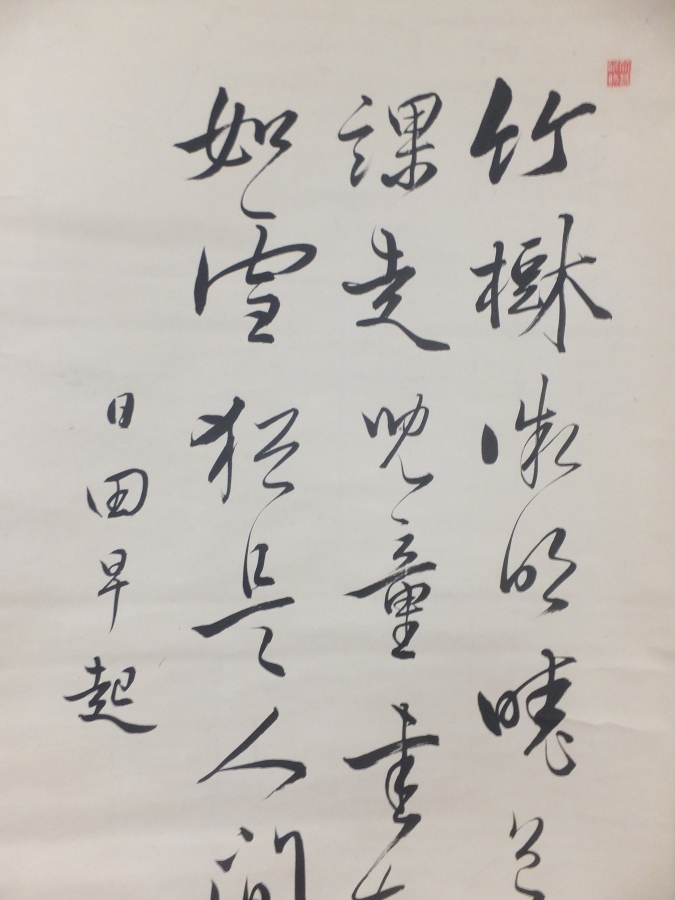 竹樹微明曉
課走兒童
如雪猶是人間
日田早起